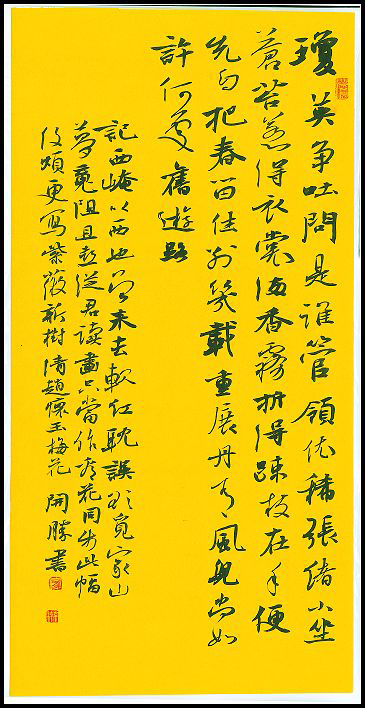 瓊英争吐問是誰管領依稀張緒小坐
蒼苔惹得衣裳香霧折得疎枝在手便
先自把春留住别幾載重展丹青風貌尚如
許何處舊遊路
記西崦以西也曾来去軟红耽誤欲覓家山
夢魂阻且從君读畫只當作看花同步此幅
後煩更寫紫薇新樹清趙懷玉梅花 開勝書